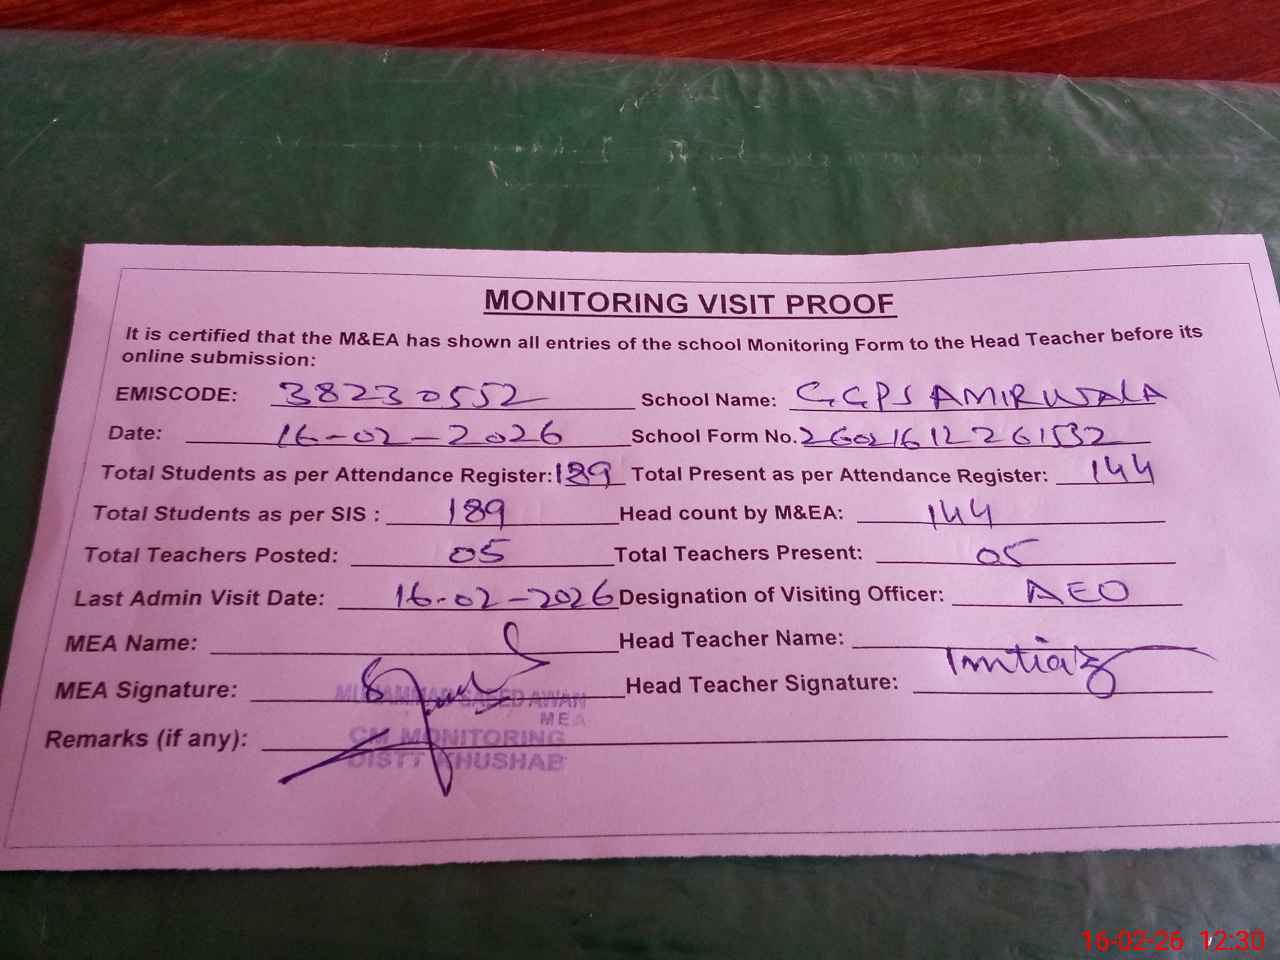 MONITORING VISIT PROOF
It is certified that the M&EA has shown all entries of the school Monitoring Form to the Head Teacher before its
online submission:
EMISCODE: 38230552 School Name: GGPS AMIRWALA
Date: 16-02-2026 School Form No. 26021612261532
Total Students as per Attendance Register: 189 Total Present as per Attendance Register: 144
Total Students as per SIS : 189 Head count by M&EA: 144
Total Teachers Posted: 05 Total Teachers Present: 05
Last Admin Visit Date: 16-02-2026 Designation of Visiting Officer: AEO
MEA Name: Head Teacher Name:
MEA Signature: Head Teacher Signature: Imtiaz
MUHAMMAD SAEED AWAN
MEA
Remarks (if any):
CM MONITORING
DISTT KHUSHAB
16-02-26 12:30